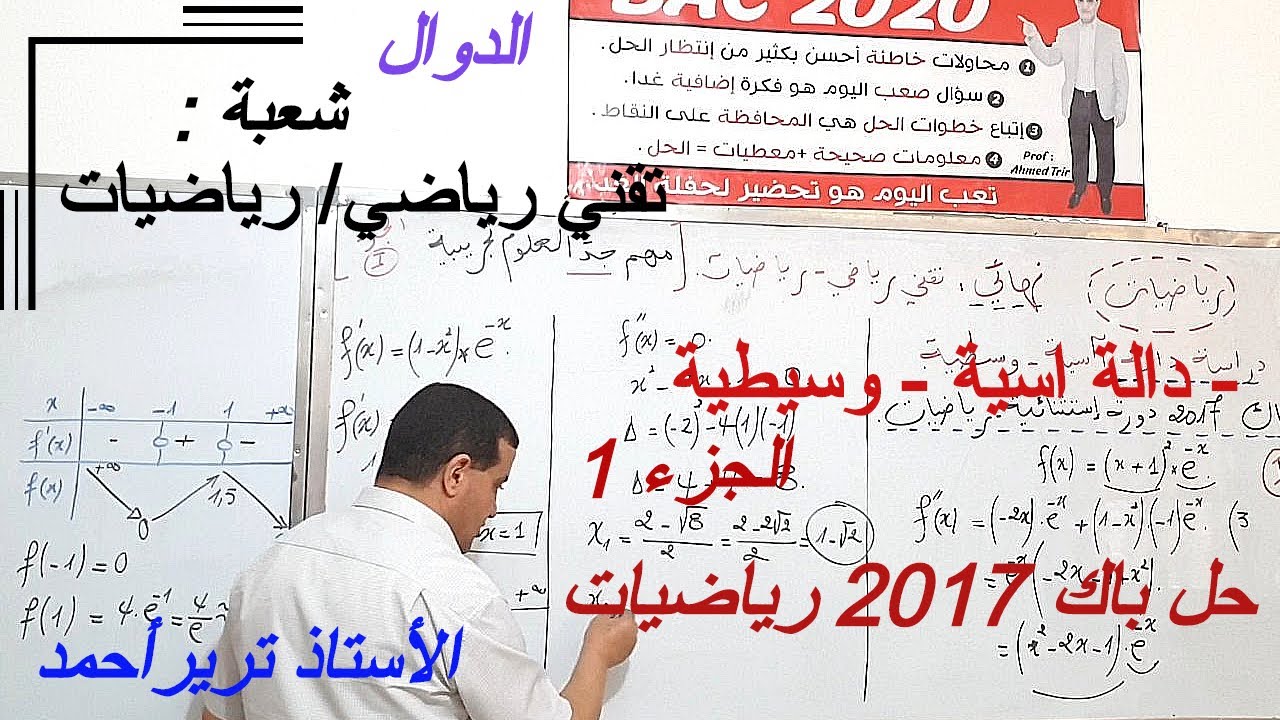 الدوال
شعبة :
تقني رياضي/ رياضيات
BAC 2020
1 محاولات خاطئة أحسن بكثير من إنتظار الحل.
2 سؤال صعب اليوم هو فكرة إضافية غدا.
3 إتباع خطوات الحل هي المحافظة على النقاط.
4 معلومات صحيحة +معطيات = الحل.
Prof :
Ahmed Trir
تعب اليوم هو تحضير لحفلة الغد
(رياضيات) نهائي: تقني رياضي - رياضيات. [مهم جدا لعلوم تجريبية
I
- دالة اسية - وسيطية
الجزء 1
حل باك 2017 رياضيات
2017 دورة إستثنائية رياضيات.
f(x) = (x+1)² e⁻ˣ
f''(x) = (-2x)·e⁻ˣ + (1-x²)(-1)e⁻ˣ (3
= (x²-2x-1)·e⁻ˣ
f''(x) = 0
Δ = (-2)²-4(1)(-1)
x₁ = (2-√8)/2 = (2-2√2)/2 = 1-√2
f'(x) = (1-x²)×e⁻ˣ.
f'(x)
x=1
+∞
x -∞ -1 1 +∞
f'(x) - 0 + 0 -
f(x) +∞ 0 1,5
f(-1) = 0
f(1) = 4·e⁻¹ = 4/e
الأستاذ ترير أحمد